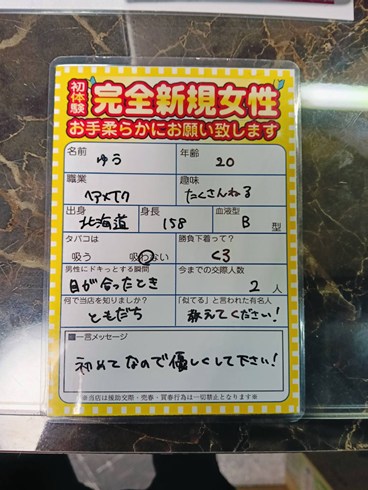 初体験
完全新規女性
お手柔らかにお願い致します
名前 ゆう 年齢 20
職業 ヘアメイク 趣味 たくさんねる
出身 北海道 身長 158 血液型 B 型
タバコは 吸う 吸わない 勝負下着って? <3
男性にドキっとする瞬間 目が合ったとき 今までの交際人数 2 人
何で当店を知りましたか? ともだち 「似てる」と言われた有名人 教えてください!
■一言メッセージ
初めてなので優しくして下さい!
※当店は援助交際・売春・買春行為は一切禁止となります※